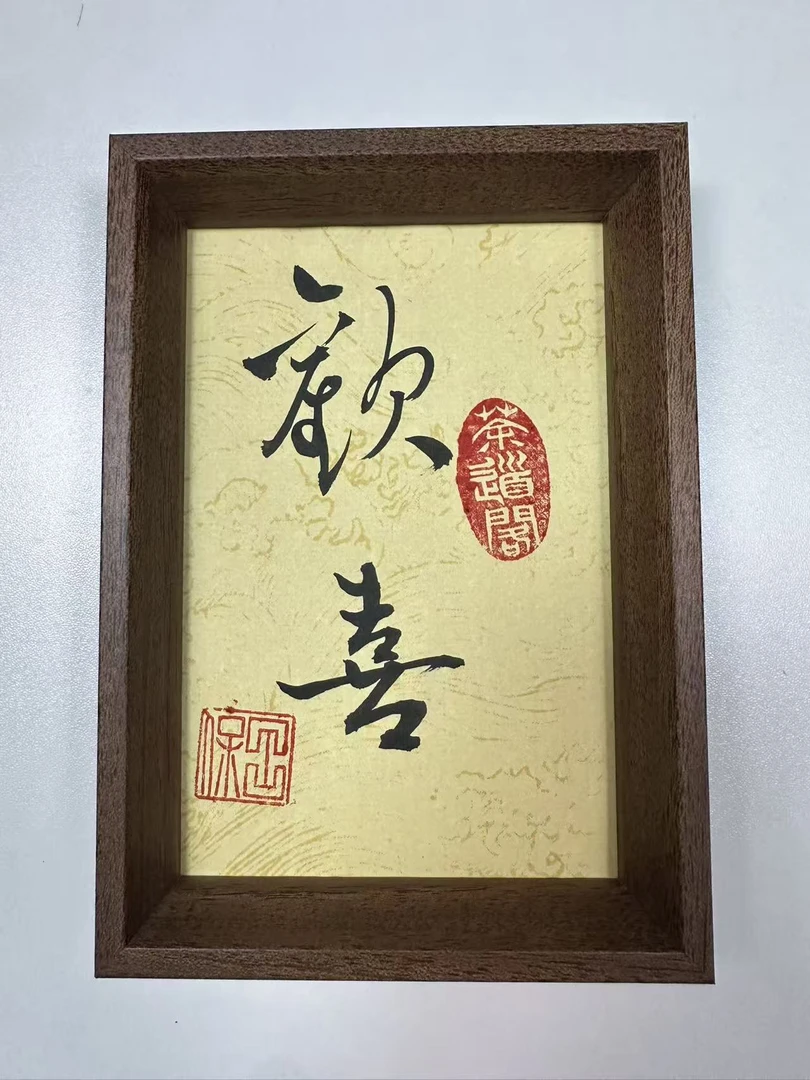 歡
喜
茶道閣